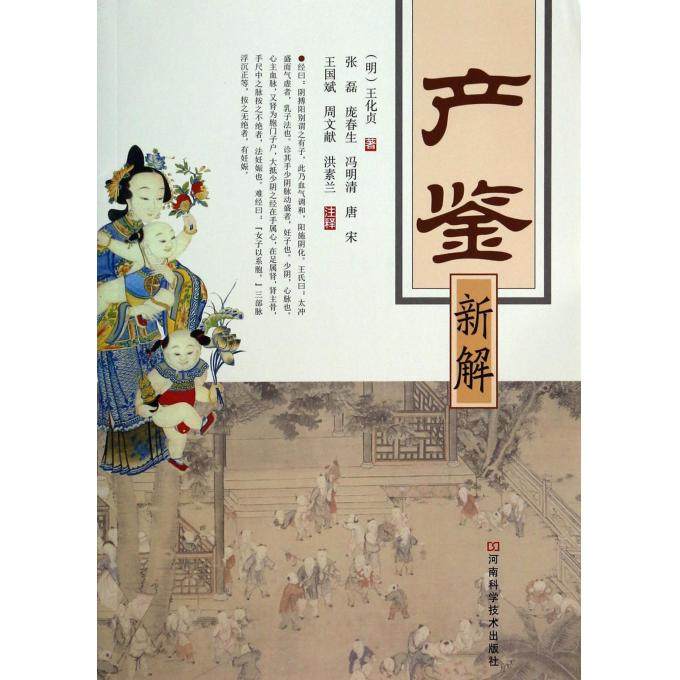 产鉴
新解
(明)王化贞 著
张磊 庞春生 冯明清 唐宋
王国斌 周文献 洪素兰 注释
●经曰：阴搏阳别谓之有子，此乃血气调和，阳施阴化。王氏曰：太冲
盛而气虚者，乳子法也。诊其手少阴脉动盛者，妊子也。少阴，心脉也，
心主血脉，又肾为胞门子户，大抵少阴之经在手属心，在足属肾，肾主骨，
手尺中之脉按之不绝者，法妊娠也。难经曰：「女子以系胞。」三部脉
浮沉正等，按之无绝者，有妊娠。
河南科学技术出版社